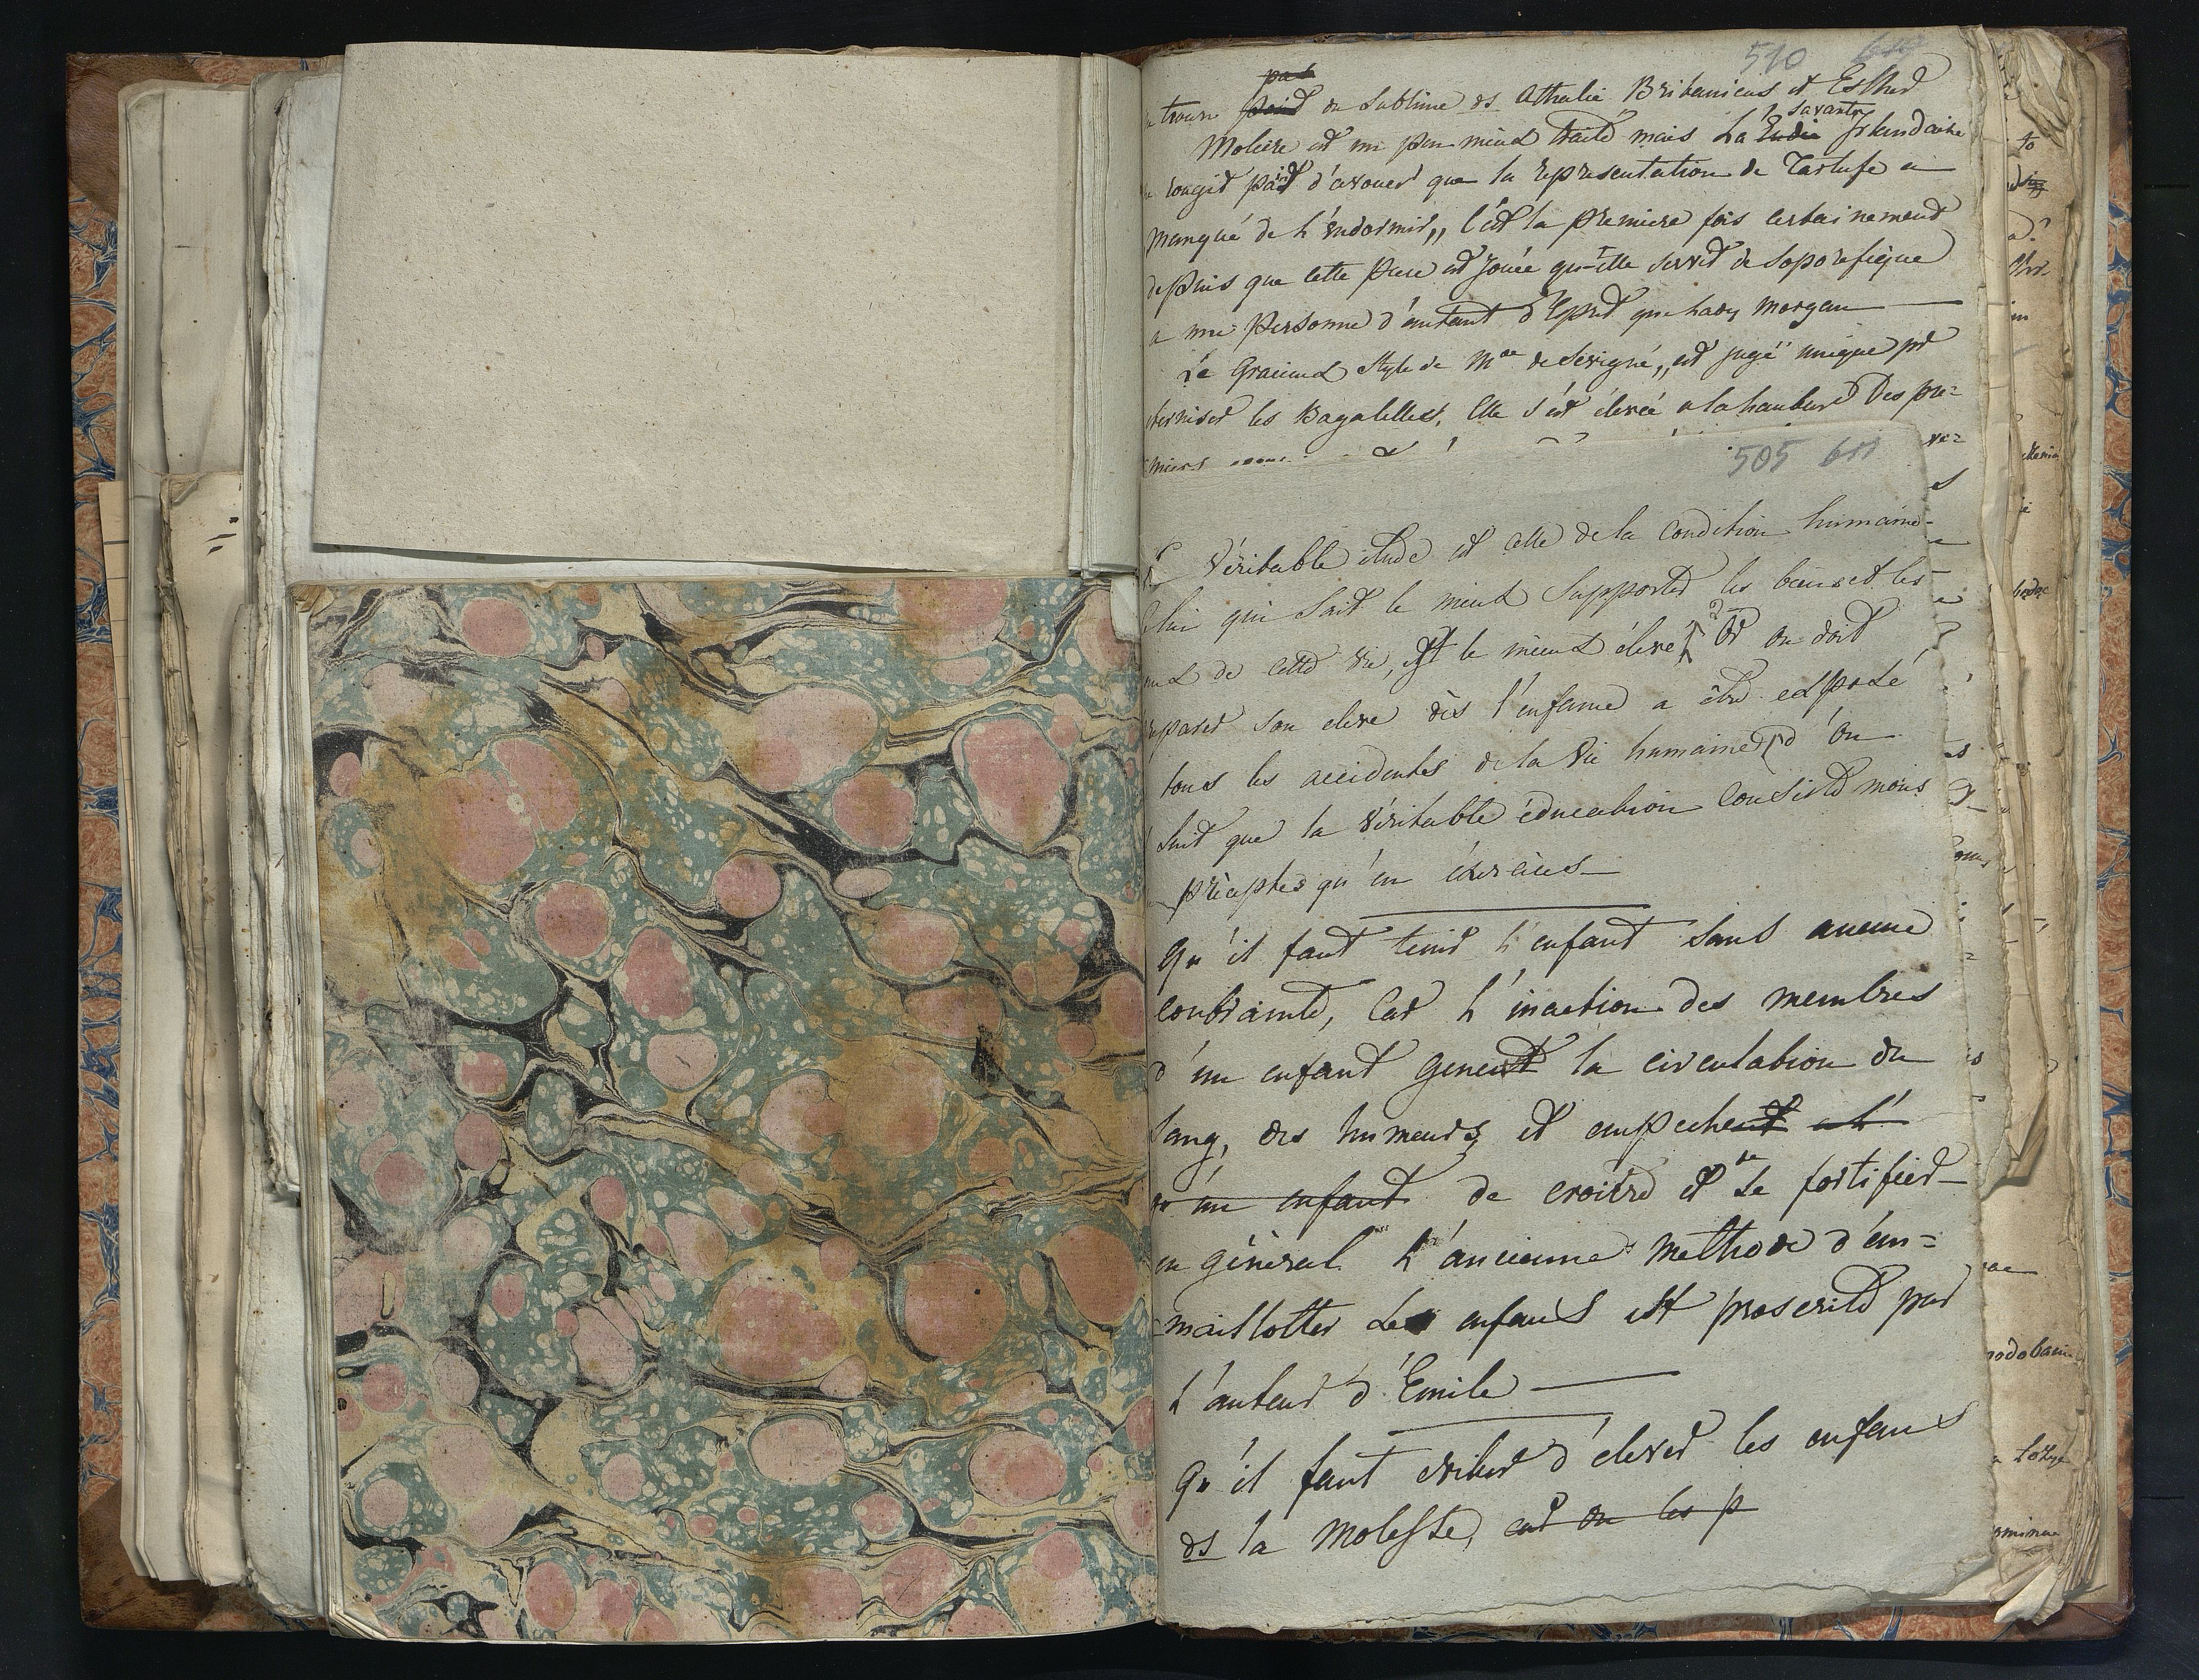 510
pas
trouve point du sublime ds Athalie Britanicus et Esther
savante
Moliere est un peu mieux traité mais La Ladie Irlandaise
rougit point d'avouer que la représentation de Tartufe a
manqué de l'endormir,, C'est la premiere fois certainement
depuis que cette piece est jouée qu'elle servit de soporefique
a une personne d'autant d'Esprit que Lady Morgan
Le Gracieux style de Mme de Sévigné,, est jugé unique pr
eterniser les Bagatelles. Elle s'est élevée a la hauteur Des pre-
miers
505 611
Véritable étude est celle de la condition humaine
Celui qui sait le mieux supporter les biens et les
maux de cette vie, est le mieux élevé, Or on doit
préparer son eleve dès l'enfance a être exposé
tous les accidentes de la vie humaine, d'ou
suit que la véritable éducation consiste moins
en préceptes qu'en éxercices
Qu'il faut tenir L'enfant sans aucune
contrainte, Car L'inaction des membres
d'un enfant gene la circulation du
sang, des humeurs et empeche
qu'un enfant de croitre et de se fortifier
en général L'ancienne Methode d'em=
maillotter Les enfans est proscrite par
L'auteur d'Emile
Qu'il faut eviter d'elever les enfans
ds la Molesse, car on les p